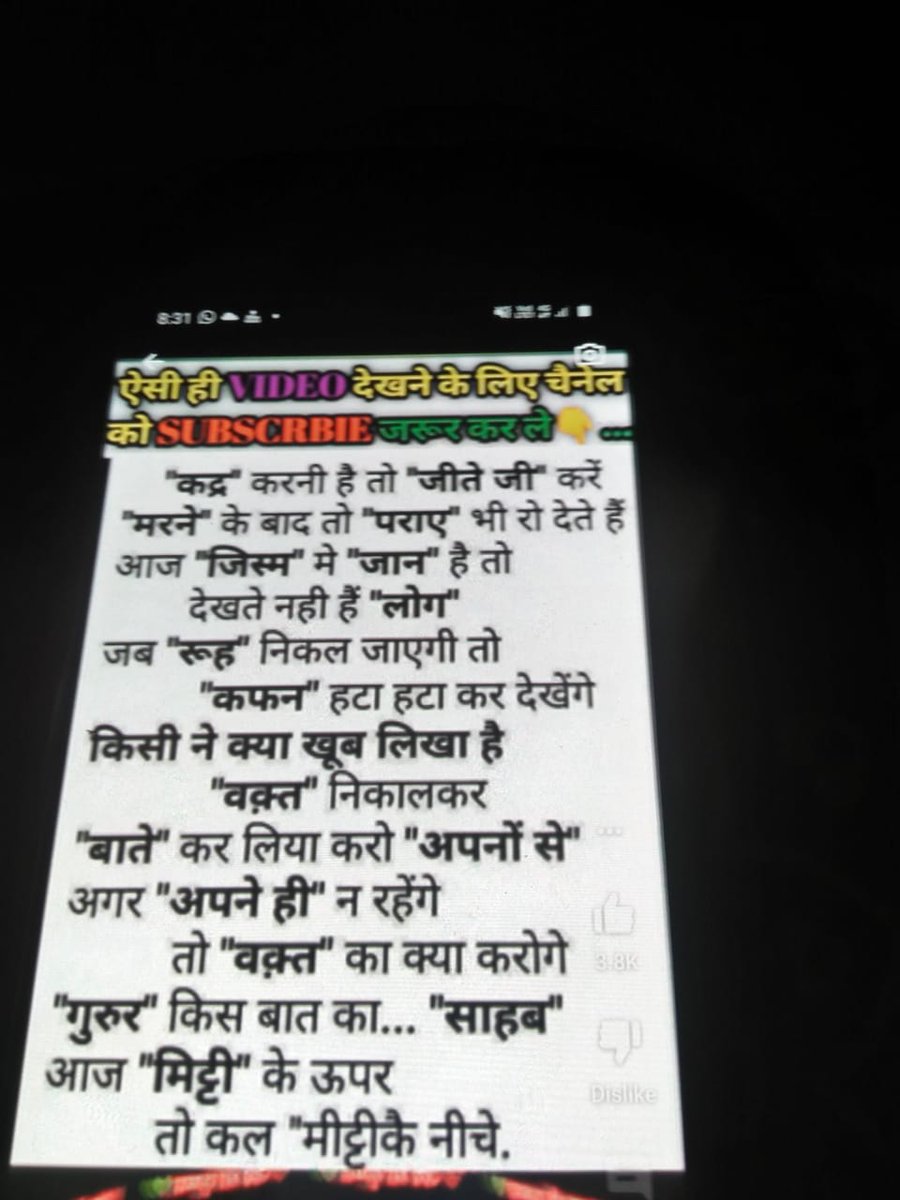 8:31
ऐसी ही VIDEO देखने के लिए चैनेल
को SUBSCRBIE जरूर कर ले👇...
"कद्र" करनी है तो "जीते जी" करें
"मरने" के बाद तो "पराए" भी रो देते हैं
आज "जिस्म" मे "जान" है तो
देखते नही हैं "लोग"
जब "रूह" निकल जाएगी तो
"कफन" हटा हटा कर देखेंगे
किसी ने क्या खूब लिखा है
"वक़्त" निकालकर
"बाते" कर लिया करो "अपनों से"
अगर "अपने ही" न रहेंगे
तो "वक़्त" का क्या करोगे
3.8K
"गुरुर" किस बात का... "साहब"
आज "मिट्टी" के ऊपर
Dislike
तो कल "मीट्टीकै नीचे.